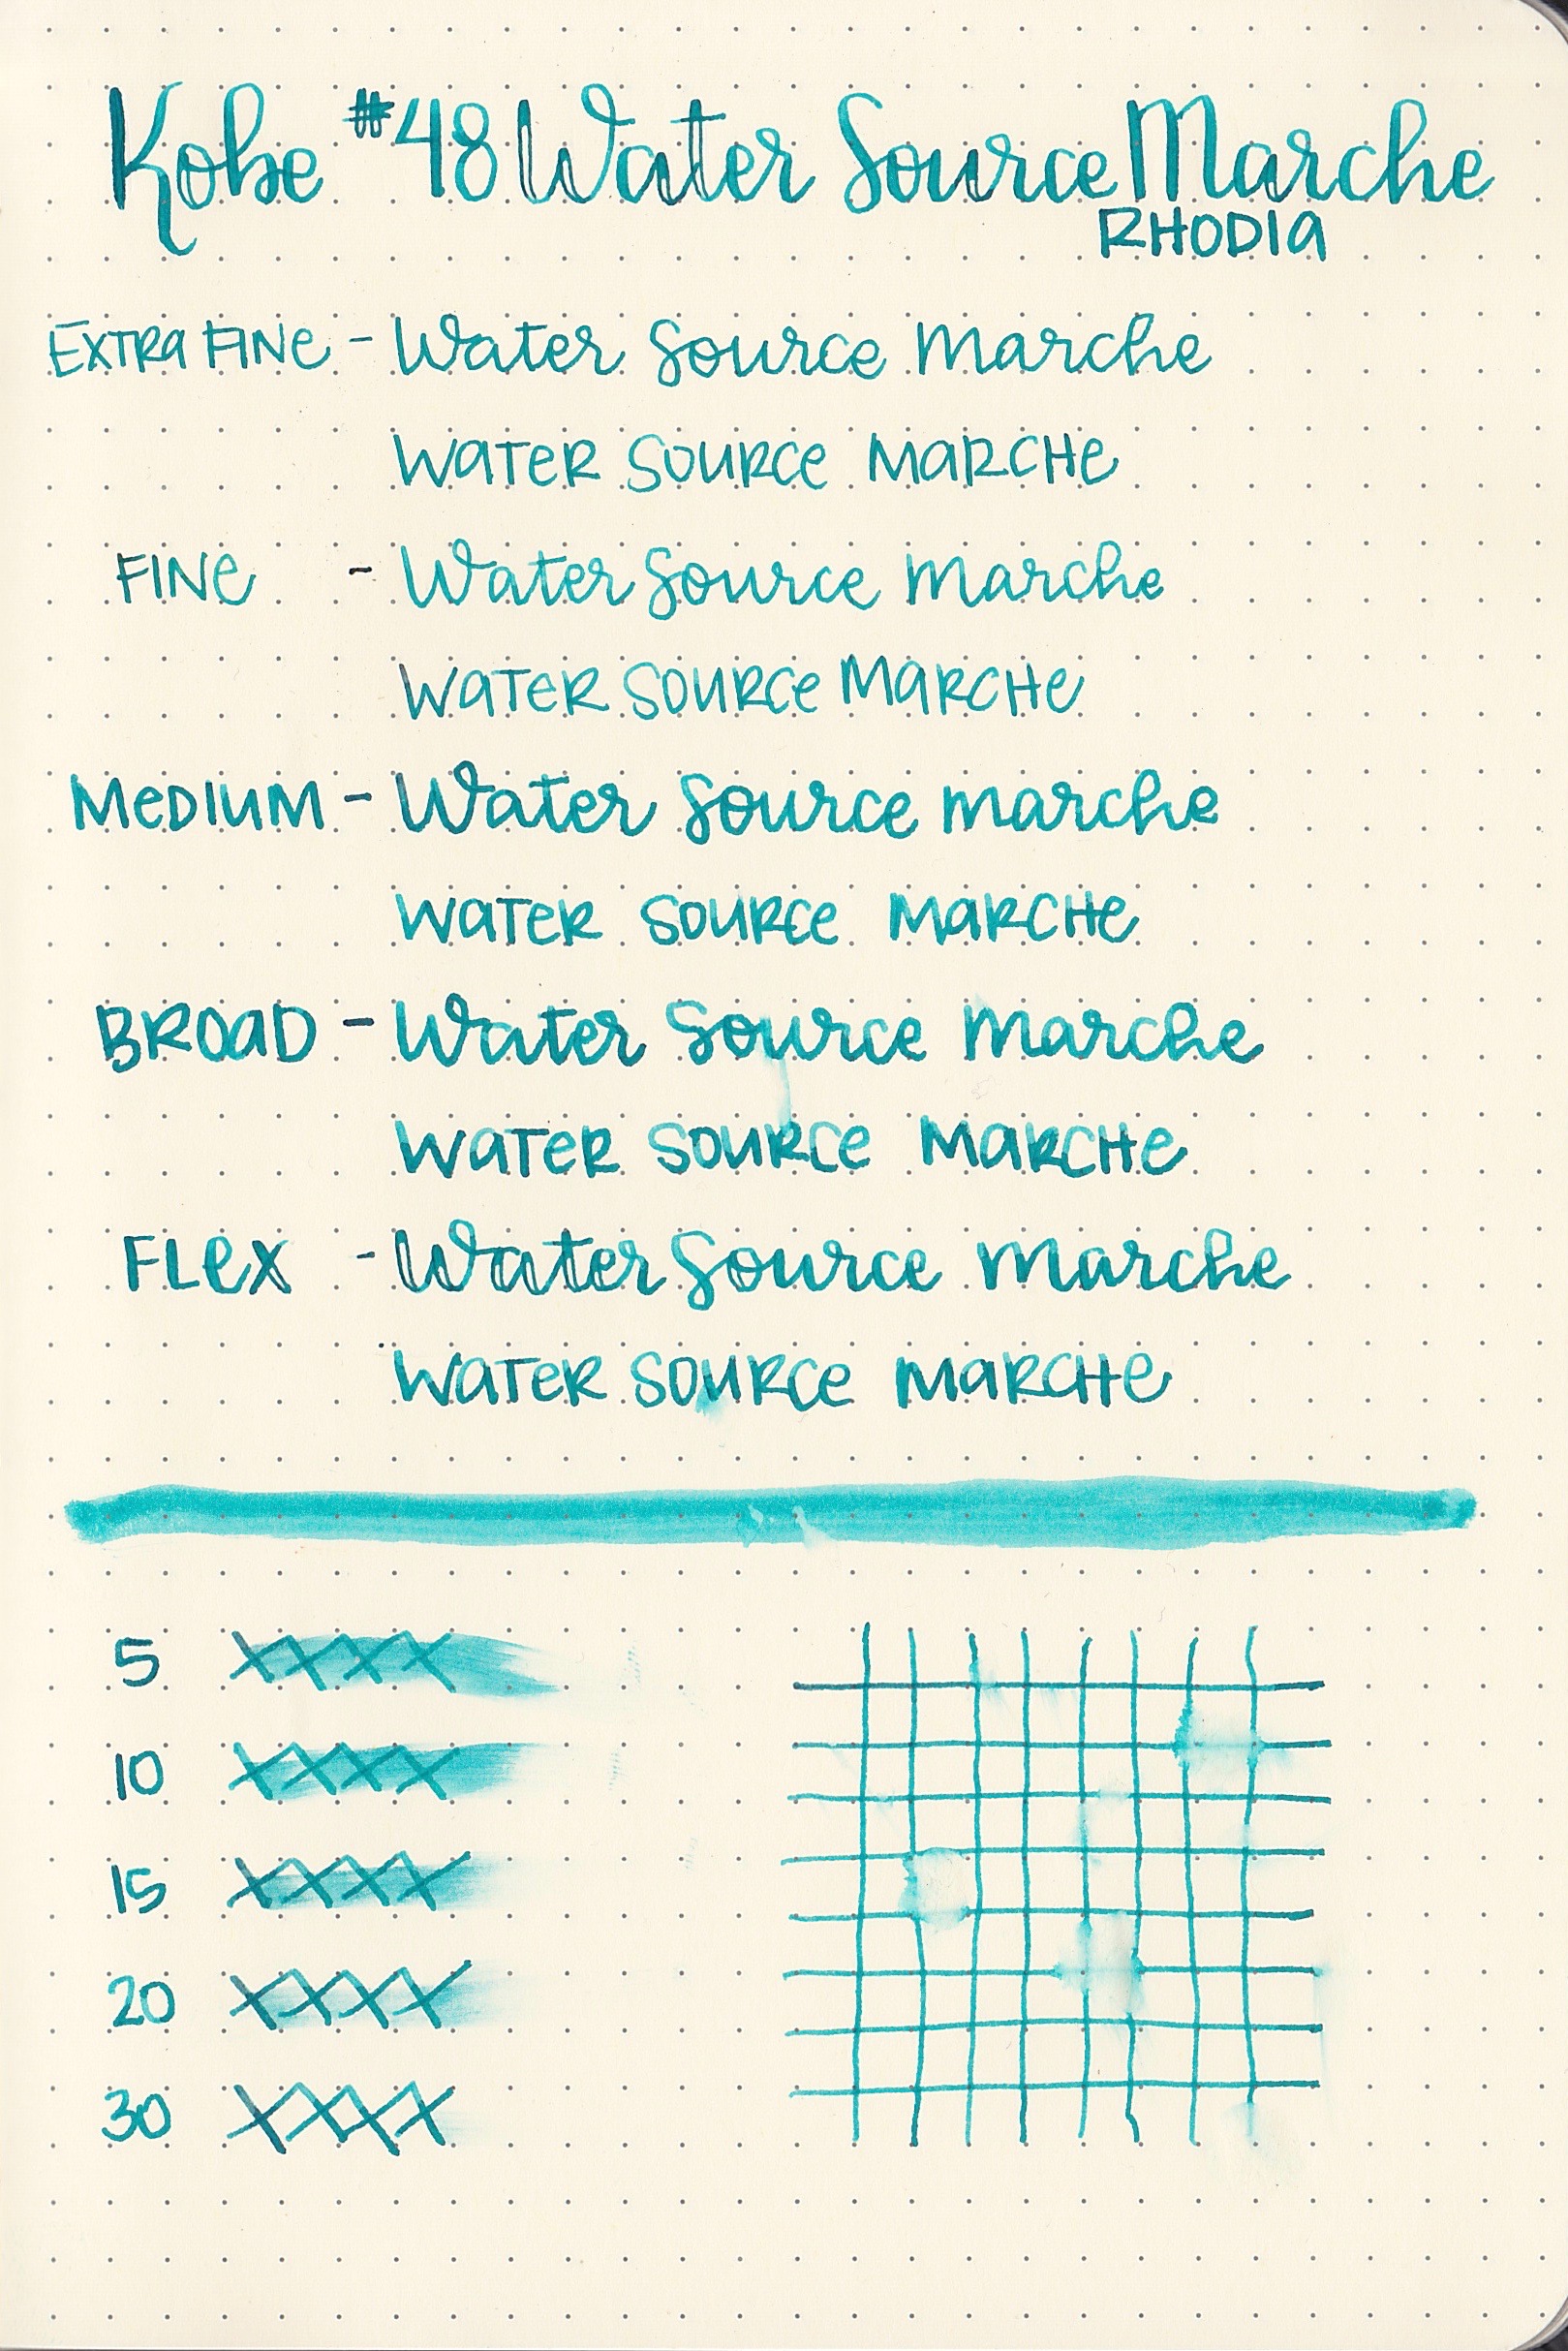 Kobe #48 Water Source Marche
RHODIA
EXTRA FINE - Water Source Marche
WATER SOURCE MARCHE
FINE - Water Source Marche
WATER SOURCE MARCHE
MEDIUM - Water Source marche
WATER SOURCE MARCHE
BROAD - Water Source Marche
WATER SOURCE MARCHE
FLEX - Water Source Marche
WATER SOURCE MARCHE
5 XXXX
10 XXXX
15 XXXX
20 XXXX
30 XXXX